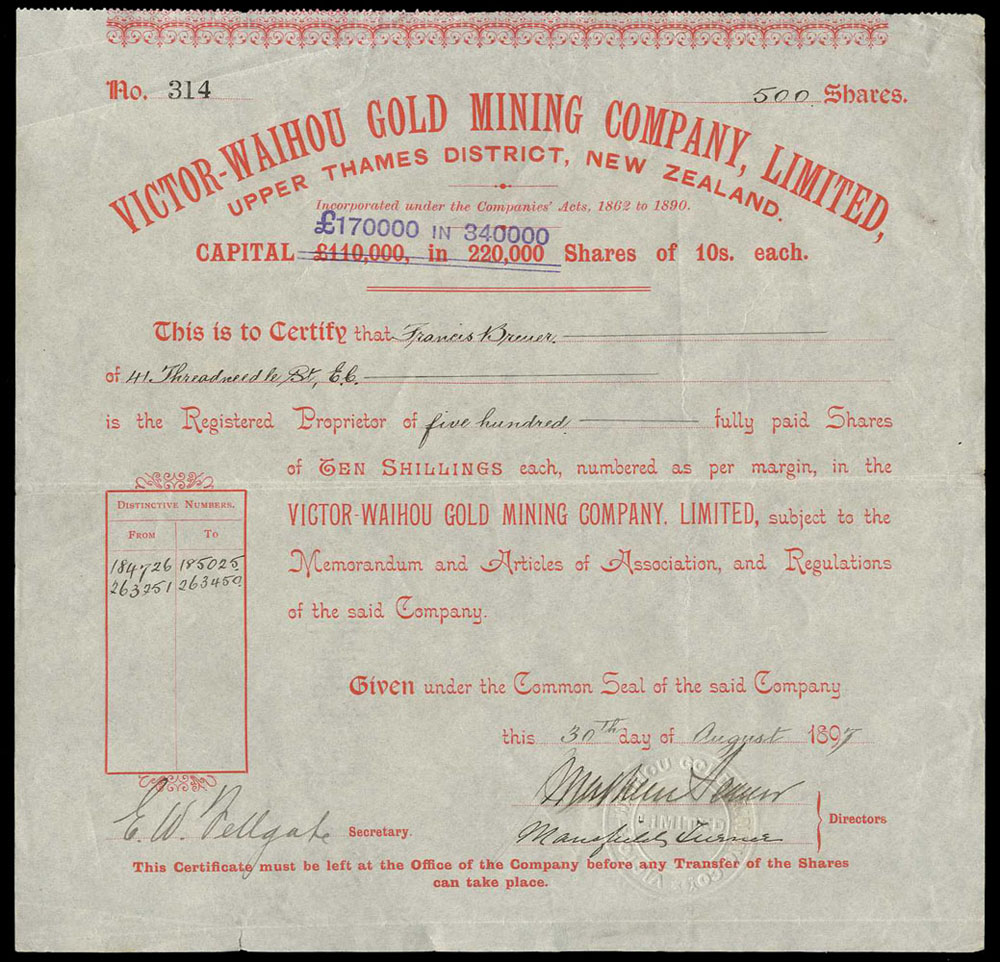 No. 314
500 Shares.
VICTOR-WAIHOU GOLD MINING COMPANY, LIMITED,
UPPER THAMES DISTRICT, NEW ZEALAND.
Incorporated under the Companies' Acts, 1862 to 1890.
£170000 IN 340000
CAPITAL £110,000, in 220,000 Shares of 10s. each.
This is to Certify that Francis Breuer.
of 41 Threadneedle St, E.C.
is the Registered Proprietor of five hundred fully paid Shares
of TEN SHILLINGS each, numbered as per margin, in the
VICTOR-WAIHOU GOLD MINING COMPANY, LIMITED, subject to the
Memorandum and Articles of Association, and Regulations
of the said Company.
DISTINCTIVE NUMBERS.
FROM TO
184726 185025
263251 263450
Given under the Common Seal of the said Company
this 30th day of August 1897
Mansfield Turner
Directors
E. W. Fellgate Secretary.
This Certificate must be left at the Office of the Company before any Transfer of the Shares
can take place.